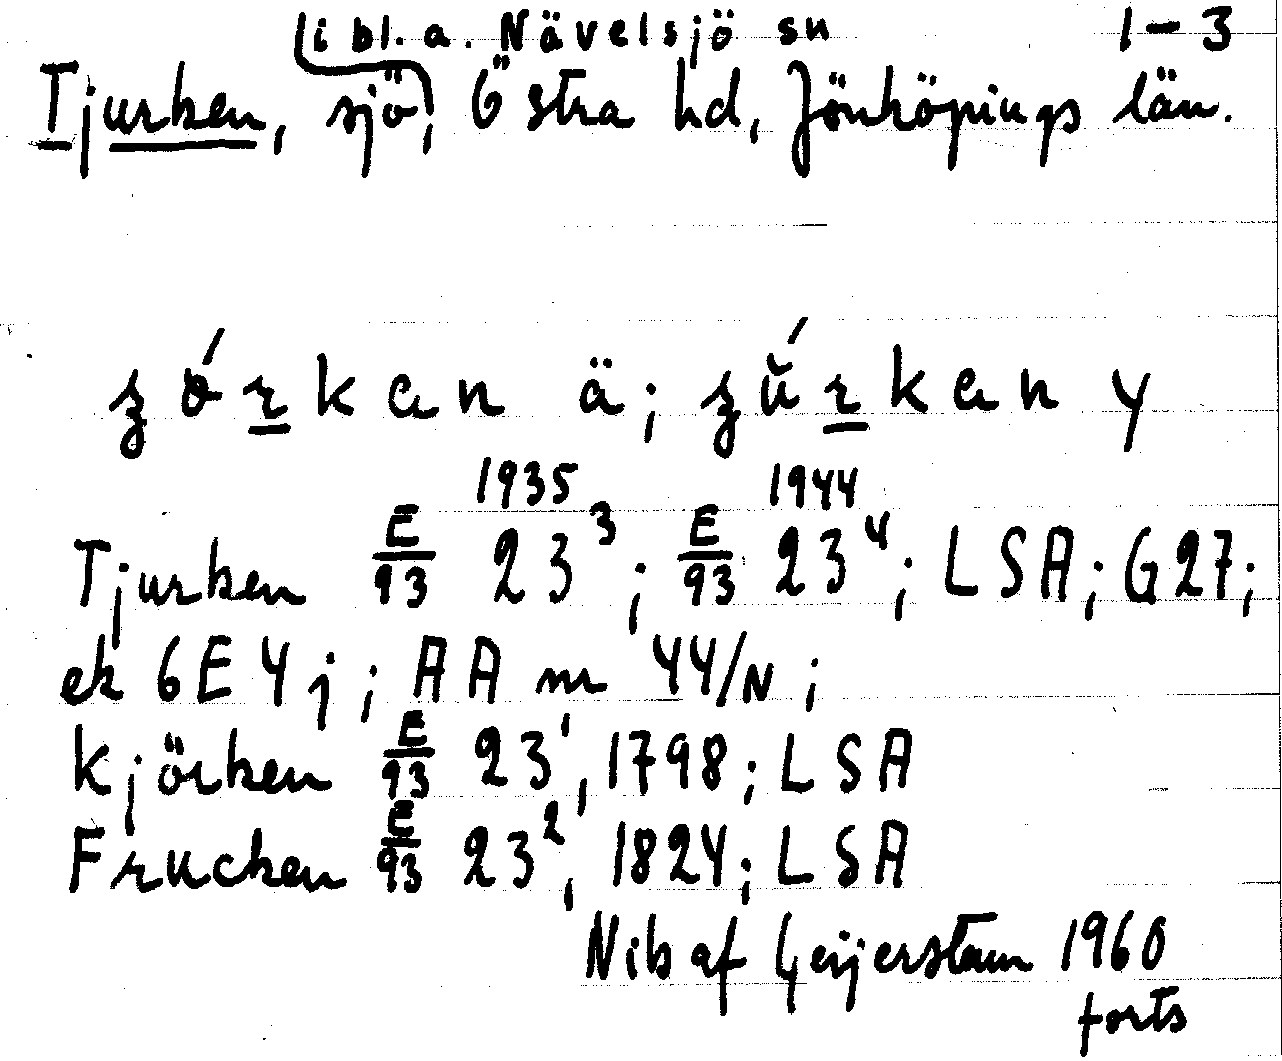 i bl. a. Nävelsjö sn 1-3
Tjurken, sjö, Östra hd, Jönköpings län.
ʒórkan ä; ʒúrkan y
1935 1944
Tjurken E/93 23³; E/93 23⁴; LSA; G27;
ek 6E4j; AA nr 44/N;
Kjörken E/93 23¹, 1798; LSA
Frucken E/93 23², 1824; LSA
Nib af Geijerstam 1960
forts